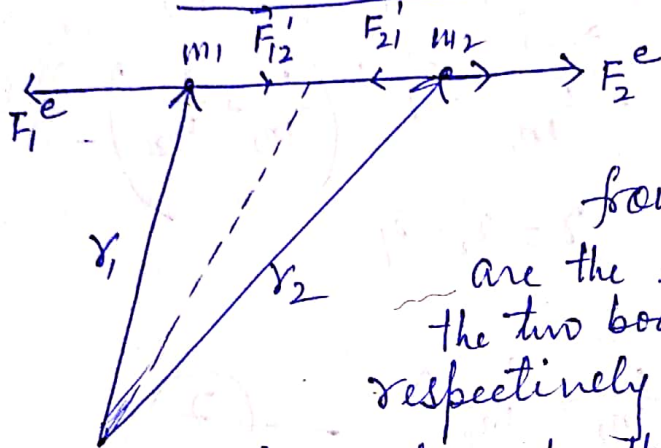 m1 F12' F21' m2
F1e F2e
r1 r2
are the
the two
respectively